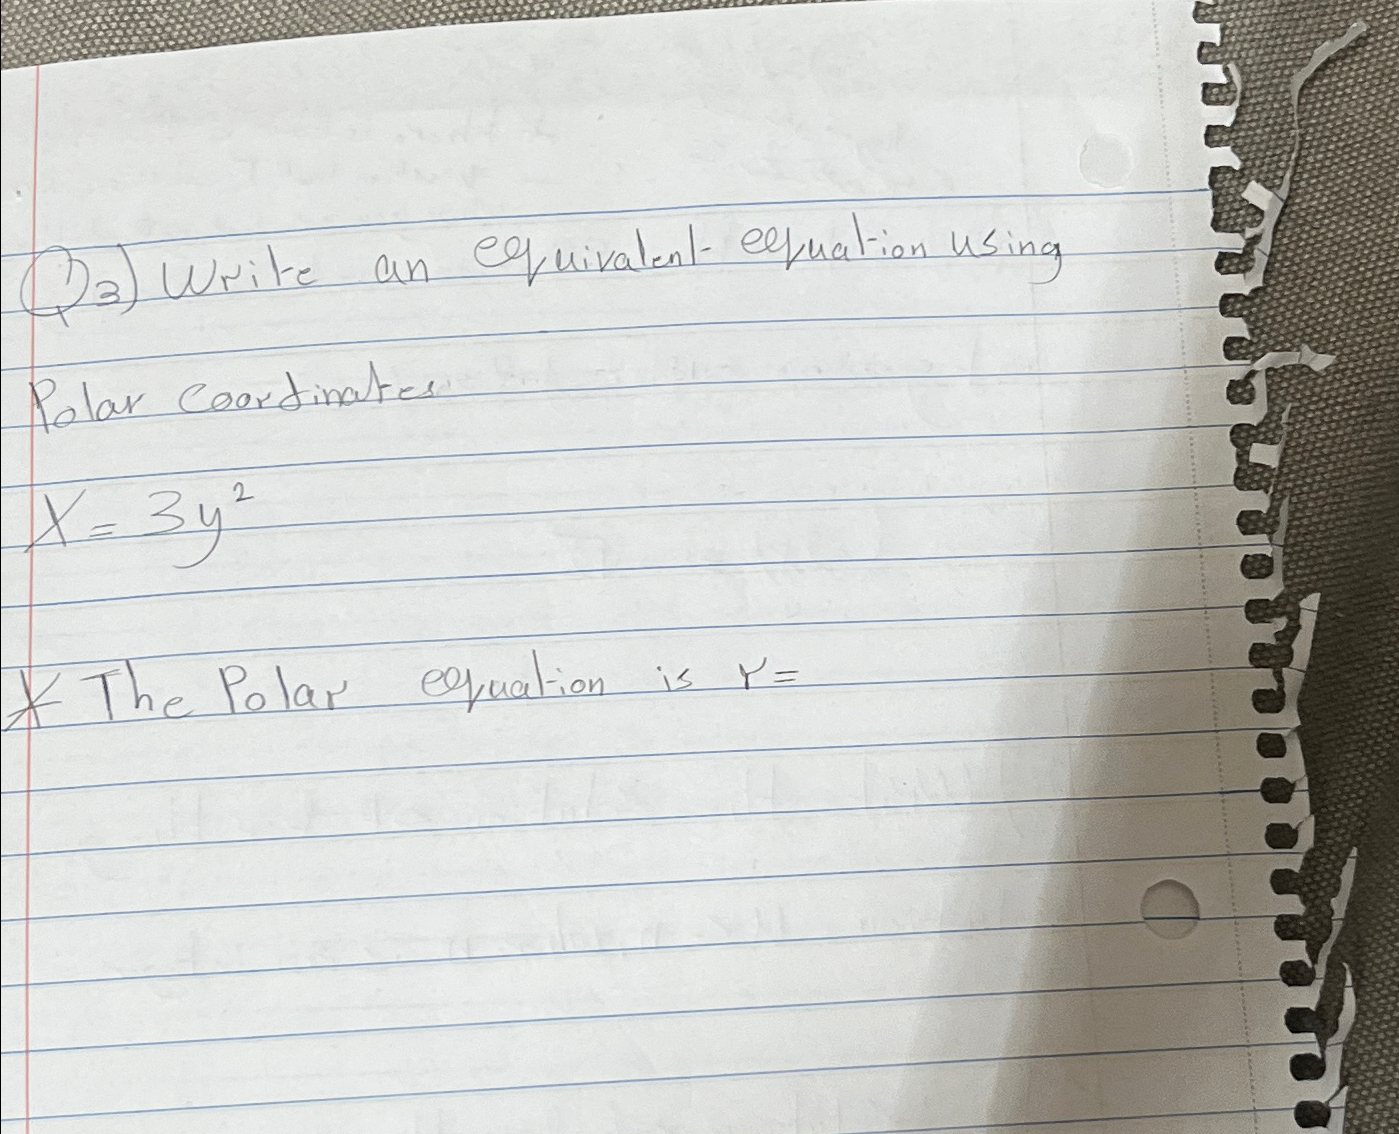 Q3) Write an equivalent equation using
Polar Coordinates.
X = 3y²
* The Polar equation is r =